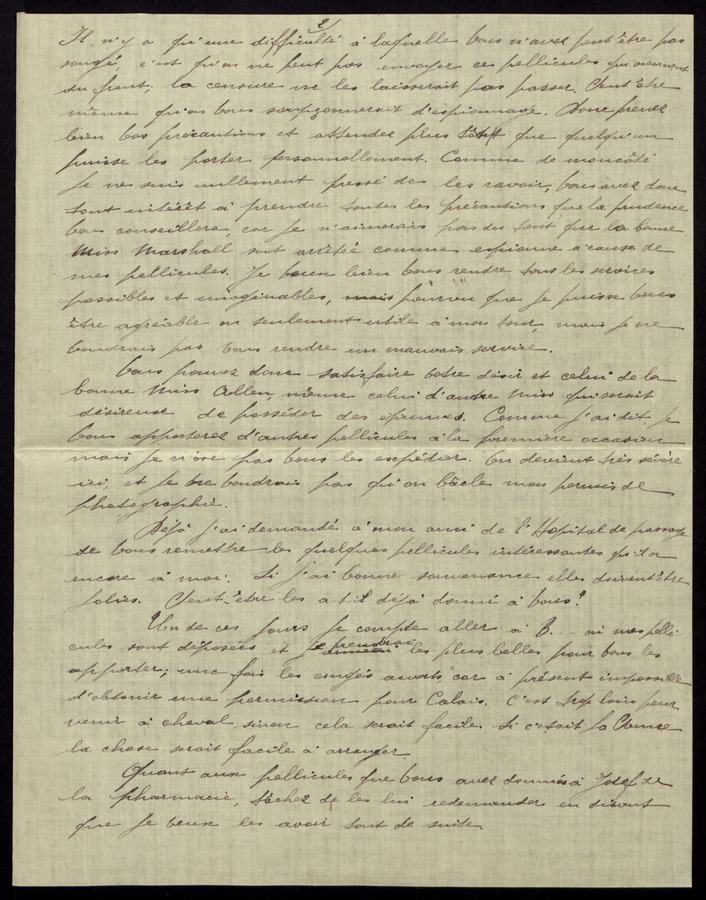 2
Il n'y a qu'une difficulté à laquelle vous n'avez peut être pas
songé, c'est qu'on ne peut pas envoyer ces pellicules qui viennent
du front; la censure ne les laisserait pas passer. Peut être
même qu'on vous soupçonnerait d'espionnage. Donc prenez
bien vos précautions et attendez plus tôt que quelqu'un
puisse les porter personnellement. Comme de mon côté
je ne suis nullement pressé de les ravoir, vous avez donc
tout intérêt à prendre toutes les précautions que la prudence
vous conseillera, car je n'aimerais pas du tout que la bonne
Miss Marshall soit arrêtée comme espionne à cause de
mes pellicules. Je veux bien vous rendre tous les services
possibles et imaginables, mais pourvu que je puisse vous
être agréable ou seulement utile à mon tour, mais je ne
voudrais pas vous rendre un mauvais service.
Vous pouvez donc satisfaire votre désir et celui de la
bonne Miss Allen, même celui d'autre Miss qui serait
désireuse de posséder des épreuves. Comme j'ai dit je
vous apporterez d'autres pellicules à la première occasion
mais je n'ose pas vous les expédier. On devient très sévère
ici, et je ne voudrais pas qu'on bâcle mon permis de
photographie.
Déjà j'ai demandé à mon ami de l'Hopital de passage
de vous remettre les quelques pellicules intéressantes qu'il a
encore à moi. Si j'ai bonne souvenance elles doivent être
jolies. Peut-être les a-t-il déjà donné à vous?
Un de ces jours je compte aller à B... où mes pelli-
cules sont déposées et je prendrai les plus belles pour vous les
apporter; une fois les congés ouverts, car à présent impossible
d'obtenir une permission pour Calais. C'est trop loin pour
venir à cheval sinon cela serait facile. Si c'était la Panne
la chose serait facile à arranger
Quant aux pellicules que vous avez données à Josef de
la pharmacie, tâchez de les lui redemander en disant
que je veux les avoir tout de suite.